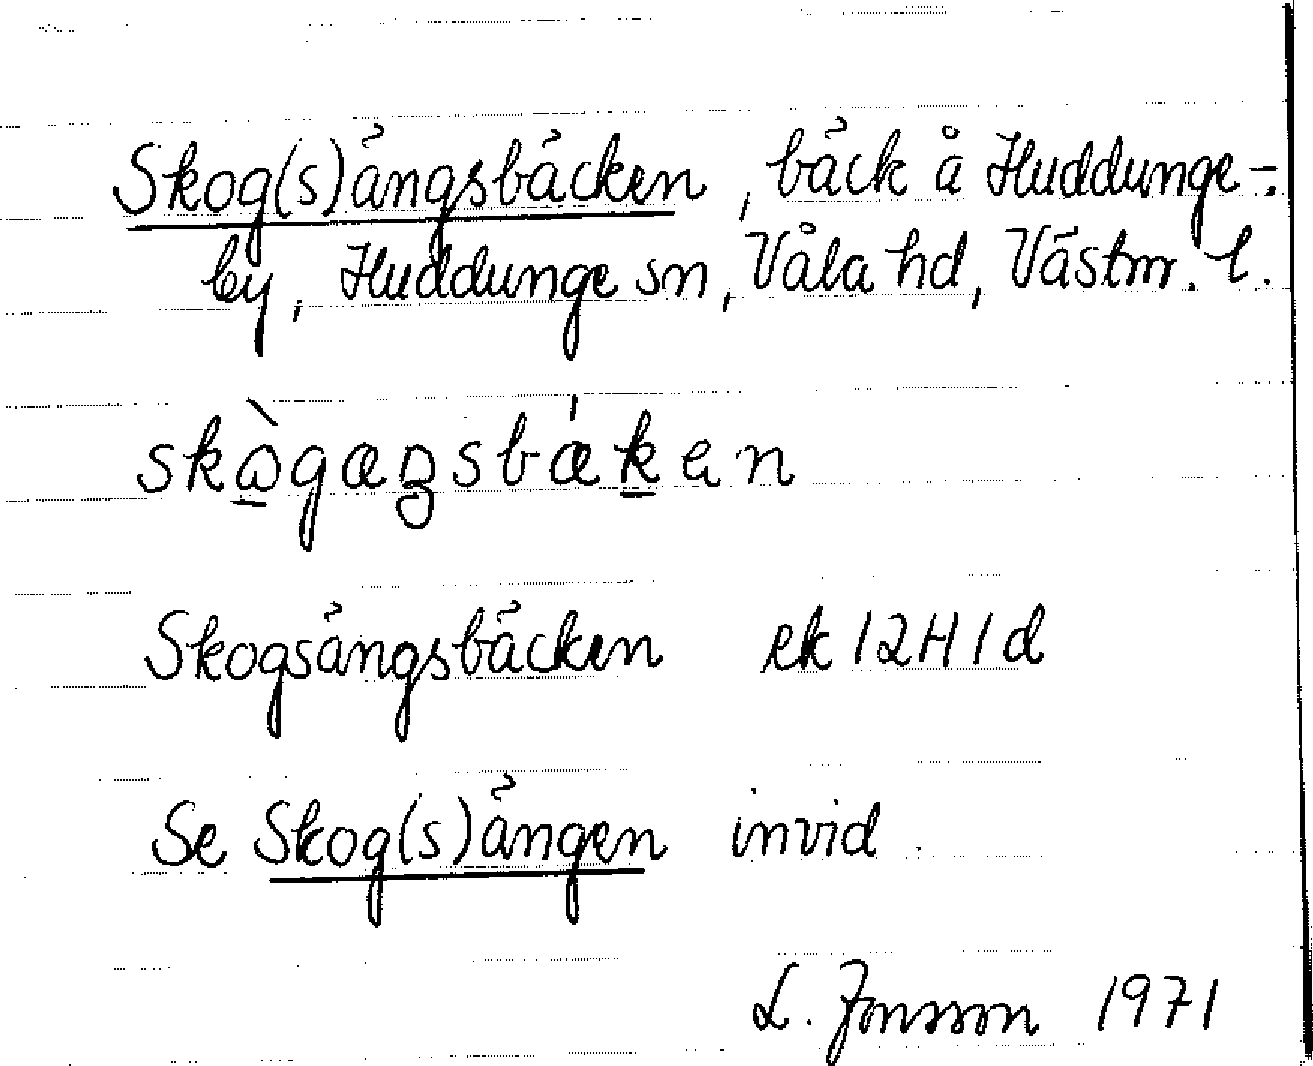 Skog(s)ängsbäcken, bäck å Huddunge-
by, Huddunge sn, Våla hd, Västm. l.
Skogsängsbäcken ek 12H1d
Se Skog(s)ängen invid
L. Jonsson 1971